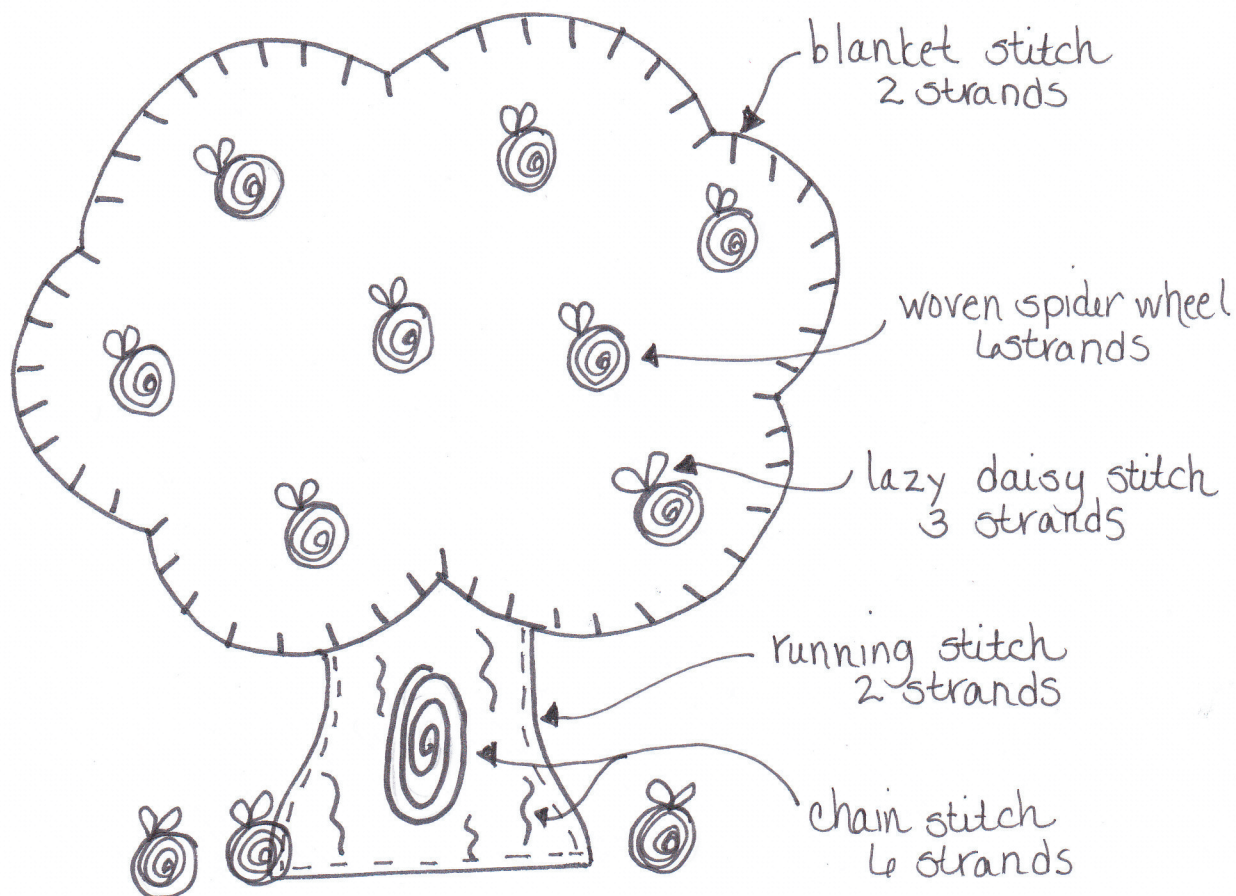 blanket stitch
2 strands
woven spider wheel
6 strands
lazy daisy stitch
3 strands
running stitch
2 strands
chain stitch
6 strands